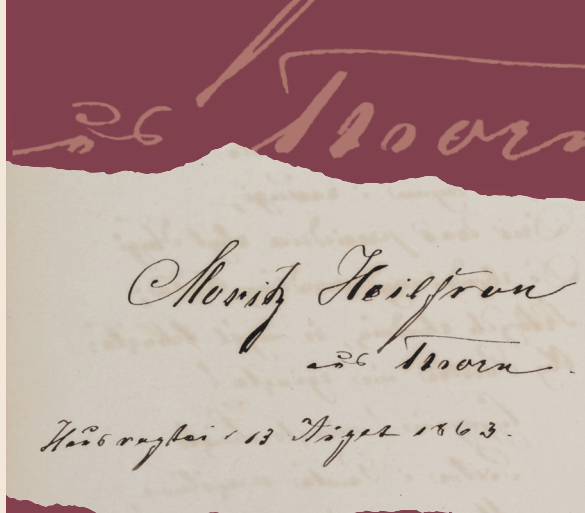 aus Thorn
Moritz Heilfron
aus Thorn.
Hausvogtei, 13 August 1863.